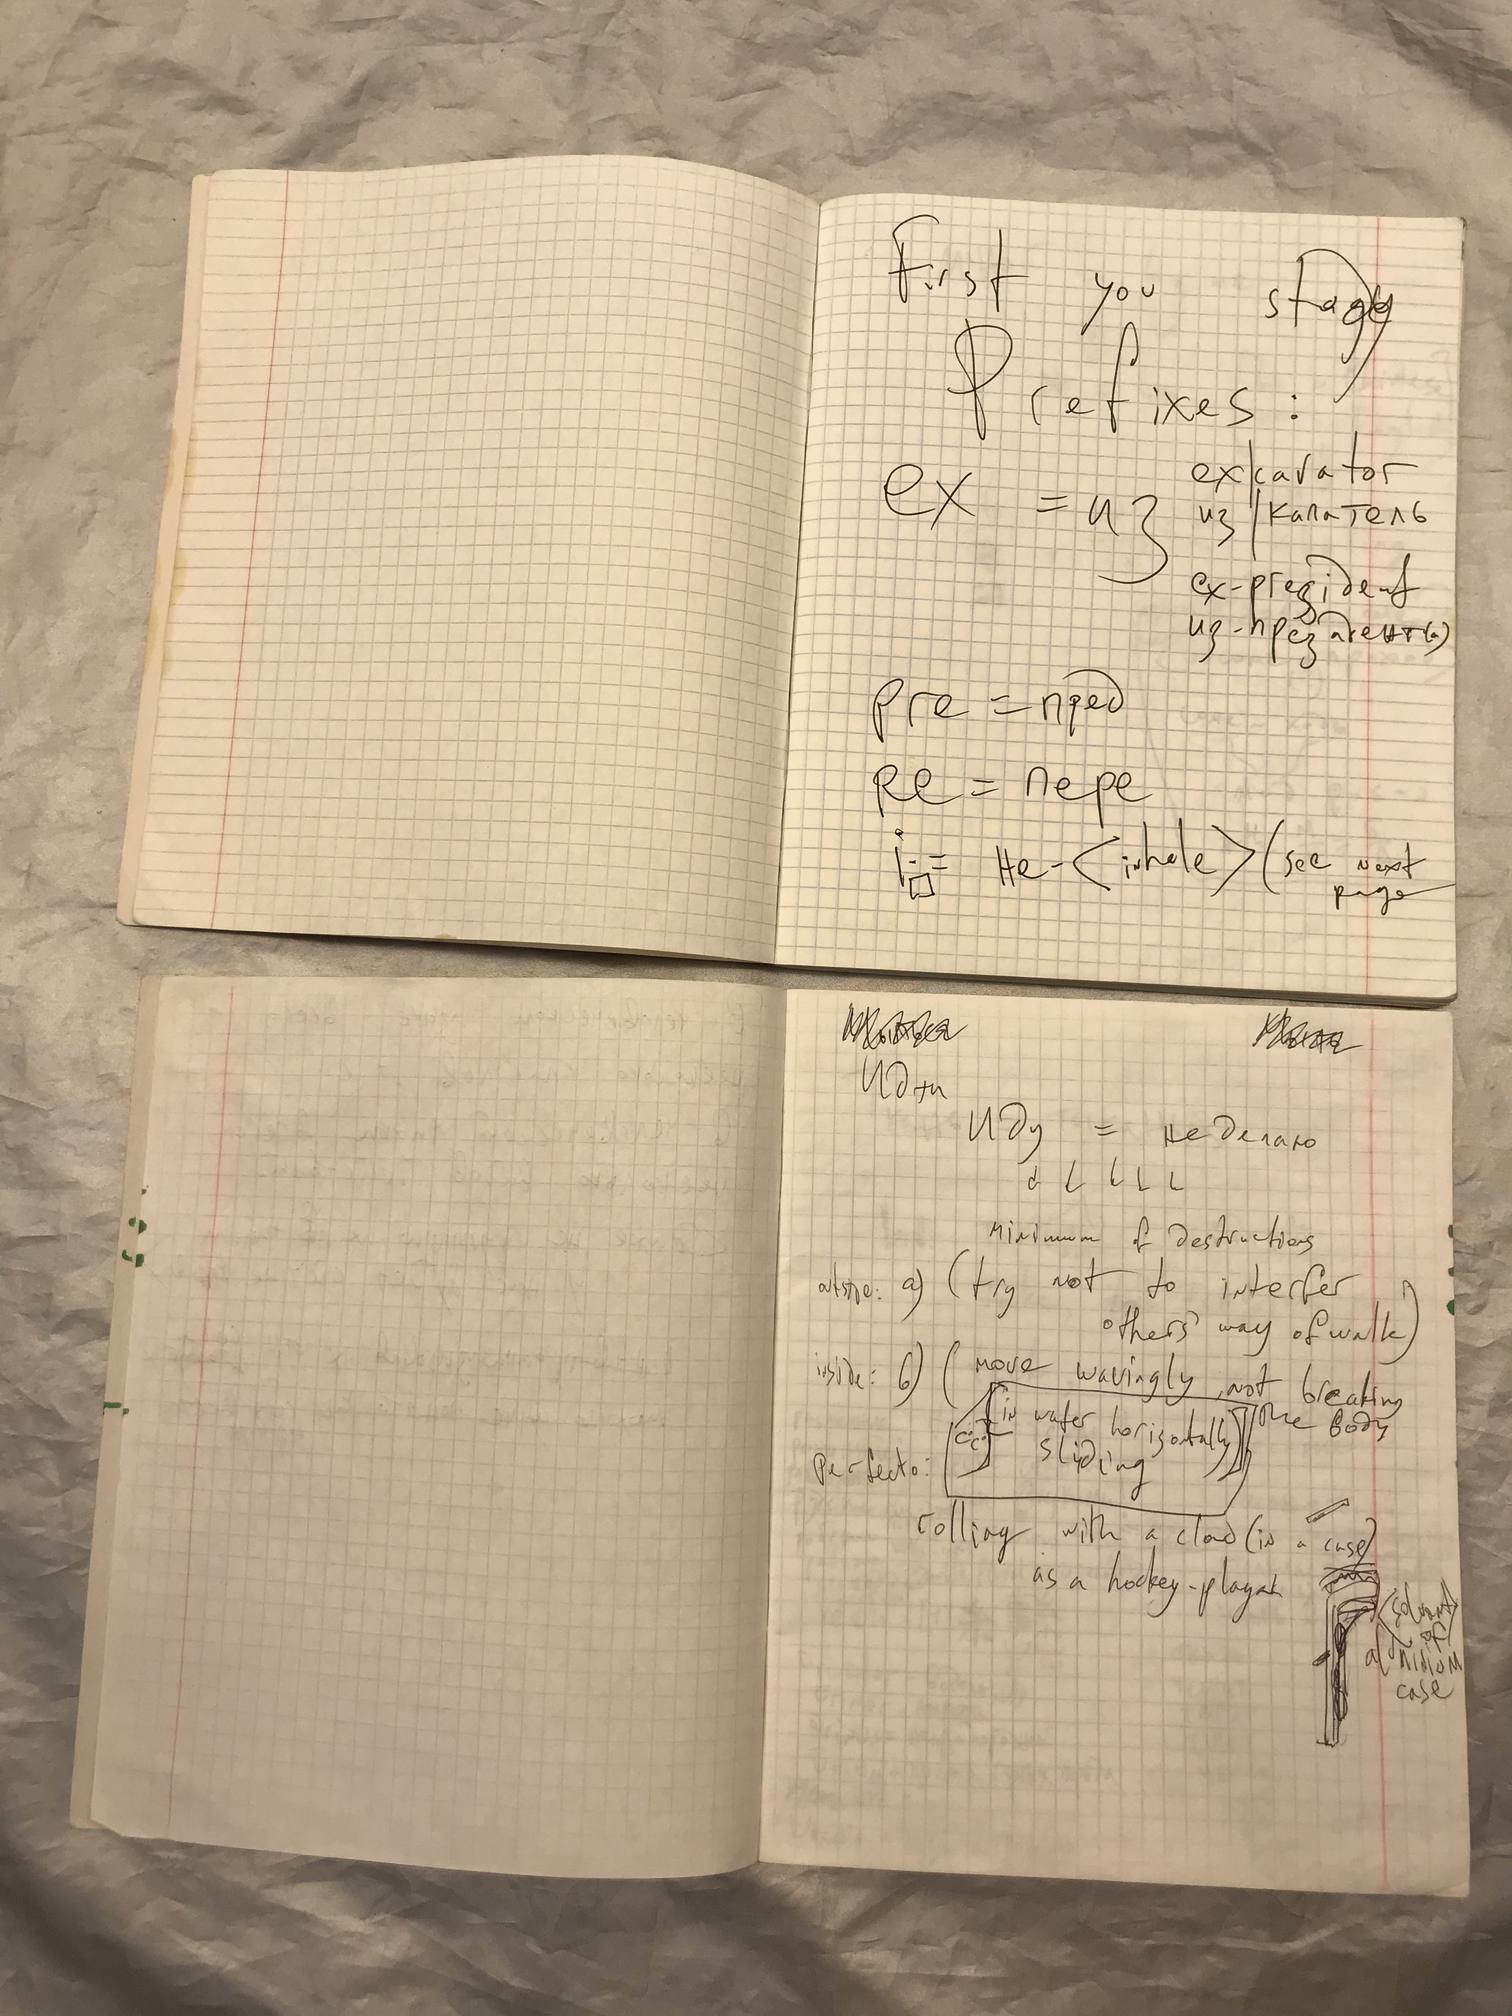 First you study
Prefixes:
ex = из
ex/cavator
из/капатель
ex-prezident
из-президент(а)
pre = пред
re = пере
i-□ = не-<inhale> (see next page
Идти
Иду = не делаю
Minimum of destructions
outside: a) (try not to interfer
others' way of walk)
inside: б) (move wavingly, not breaking
the body
in water horizontally
sliding
perfecto:
rolling with a cloud (in a case)
as a hockey-player
of
case